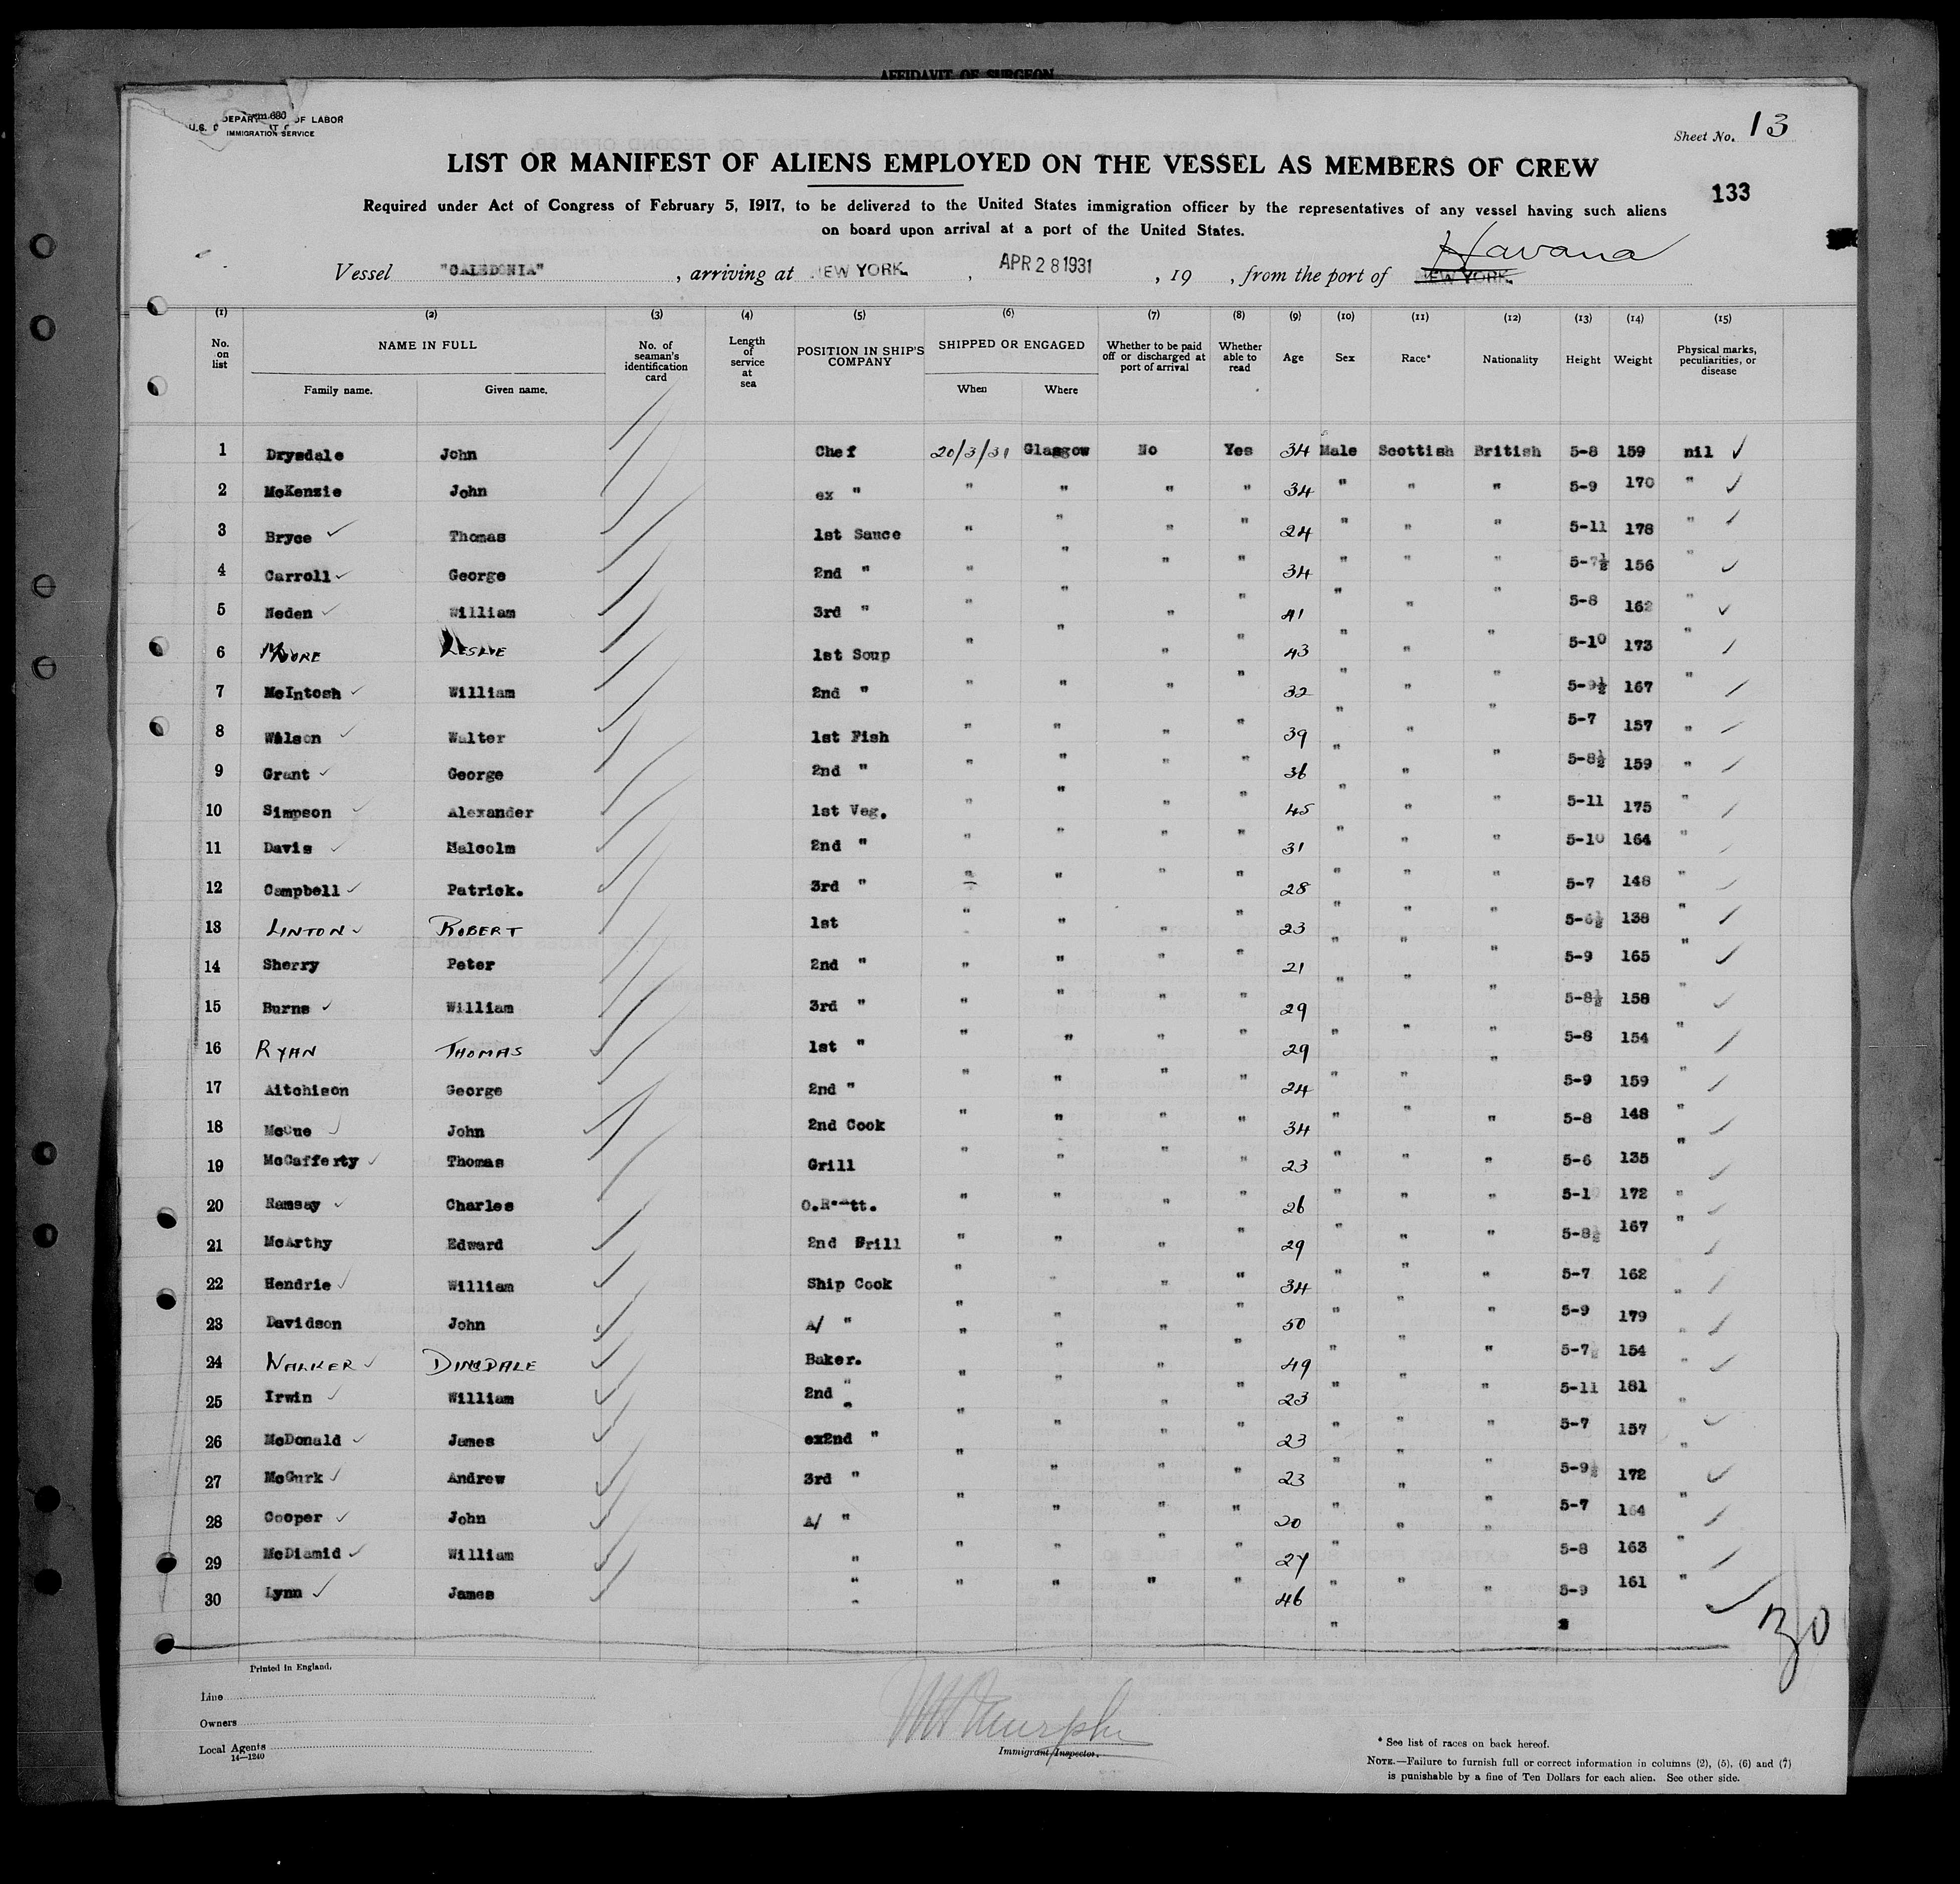 AFFIDAVIT OF SURGEON
Form 680
U.S. DEPARTMENT OF LABOR
IMMIGRATION SERVICE
Sheet No. 13
LIST OR MANIFEST OF ALIENS EMPLOYED ON THE VESSEL AS MEMBERS OF CREW
133
Required under Act of Congress of February 5, 1917, to be delivered to the United States immigration officer by the representatives of any vessel having such aliens
on board upon arrival at a port of the United States.
Havana
Vessel "CALEDONIA", arriving at NEW YORK, APR 28 1931, 19 , from the port of NEW YORK.
(1) (2) (3) (4) (5) (6) (7) (8) (9) (10) (11) (12) (13) (14) (15)
No. on list NAME IN FULL No. of seaman's identification card Length of service at sea POSITION IN SHIP'S COMPANY SHIPPED OR ENGAGED Whether to be paid off or discharged at port of arrival Whether able to read Age Sex Race* Nationality Height Weight Physical marks, peculiarities, or disease
Family name. Given name. When Where
1 Drysdale John Chef 20/3/31 Glasgow No Yes 34 Male Scottish British 5-8 159 nil ✓
2 McKenzie John ex " " " " " 34 " " " 5-9 170 " ✓
3 Bryce ✓ Thomas 1st Sauce " " " " 24 " " " 5-11 178 " ✓
4 Carroll ✓ George 2nd " " " " " 34 " " " 5-7½ 156 " ✓
5 Neden ✓ William 3rd " " " " " 41 " " " 5-8 162 " ✓
6 MOORE LESLIE 1st Soup " " " " 43 " " " 5-10 173 " ✓
7 McIntosh ✓ William 2nd " " " " " 32 " " " 5-9½ 167 " ✓
8 Wilson ✓ Walter 1st Fish " " " " 39 " " " 5-7 157 " ✓
9 Grant ✓ George 2nd " " " " " 36 " " " 5-8½ 159 " ✓
10 Simpson ✓ Alexander 1st Veg. " " " " 45 " " " 5-11 175 " ✓
11 Davis ✓ Malcolm 2nd " " " " " 31 " " " 5-10 164 " ✓
12 Campbell ✓ Patrick. 3rd " " " " " 28 " " " 5-7 148 " ✓
13 LINTON ✓ ROBERT 1st " " " " 23 " " " 5-6½ 138 " ✓
14 Sherry Peter 2nd " " " " " 21 " " " 5-9 165 " ✓
15 Burns ✓ William 3rd " " " " " 29 " " " 5-8½ 158 " ✓
16 RYAN THOMAS 1st " " " " " 29 " " " 5-8 154 " ✓
17 Aitchison George 2nd " " " " " 24 " " " 5-9 159 " ✓
18 McCue ✓ John 2nd Cook " " " " 34 " " " 5-8 148 " ✓
19 McCafferty ✓ Thomas Grill " " " " 23 " " " 5-6 135 " ✓
20 Ramsay ✓ Charles " " " " 26 " " " 172 " ✓
21 McArthy Edward 2nd Grill " " " " 29 " " " 5-8½ 167 " ✓
22 Hendrie ✓ William Ship Cook " " " " 34 " " " 5-7 162 " ✓
23 Davidson John A/ " " " " " 50 " " " 5-9 179 " ✓
24 WALKER ✓ DINSDALE Baker. " " " " 49 " " " 5-7½ 154 " ✓
25 Irwin ✓ William 2nd " " " " " 23 " " " 5-11 181 "
26 McDonald ✓ James ex2nd " " " " " 23 " " " 5-7 157 " ✓
27 McGurk ✓ Andrew 3rd " " " " " 23 " " " 5-9½ 172 ✓
28 Cooper ✓ John A/ " " " " " 20 " " " 5-7 164 " ✓
29 McDiamid ✓ William " " " " " 27 " 5-8 163 " ✓
30 Lynn ✓ James " " " " " 46 " " " 5-9 161 " ✓
30
Printed in England.
Line
Owners
Local Agents
14—1240
Murphy
Immigrant Inspector.
* See list of races on back hereof.
NOTE.—Failure to furnish full or correct information in columns (2), (5), (6) and (7)
is punishable by a fine of Ten Dollars for each alien. See other side.